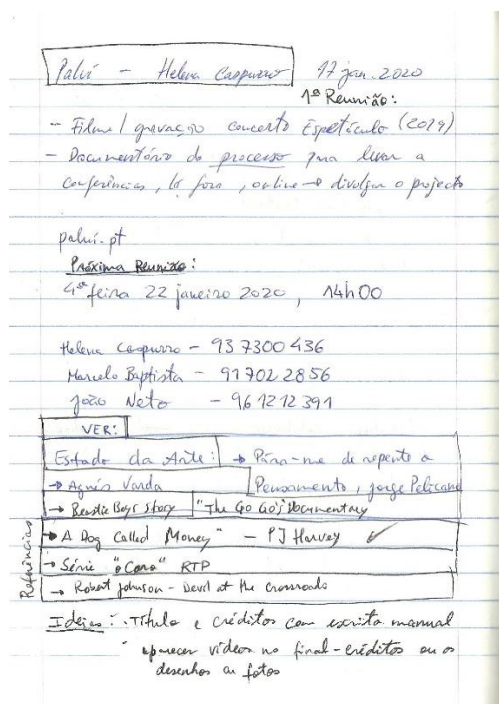 Paluí - Helena Caspurro 17 jan. 2020
1ª Reunião:
- Filme / gravação concerto Espetáculo (2019)
- Documentário do processo para levar a
conferências, lá fora, online → divulgar o projecto
palui.pt
Próxima Reunião:
4ª feira 22 janeiro 2020, 14h00
Helena Caspurro - 93 7300 436
Marcelo Baptista - 91 702 2856
João Neto - 96 12 12 391
VER:
Estado da Arte: → Pára-me de repente o
→ Agnès Varda Pensamento, Jorge Pelicano
→ Beastie Boys Story "The Go Go's" Documentary
→ "A Dog Called Money" - PJ Harvey ✓
→ Série "o Cano" RTP
→ Robert Johnson - Devil at the Crossroads
Referências
Ideias: · Título e créditos com escrita manual
· aparecer vídeos no final-créditos ou os
desenhos ou fotos